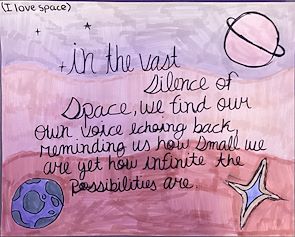 (I love space)
in the vast
Silence of
Space, we find our
own voice echoing back,
reminding us how small we
are yet how infinite the
possibilities are.